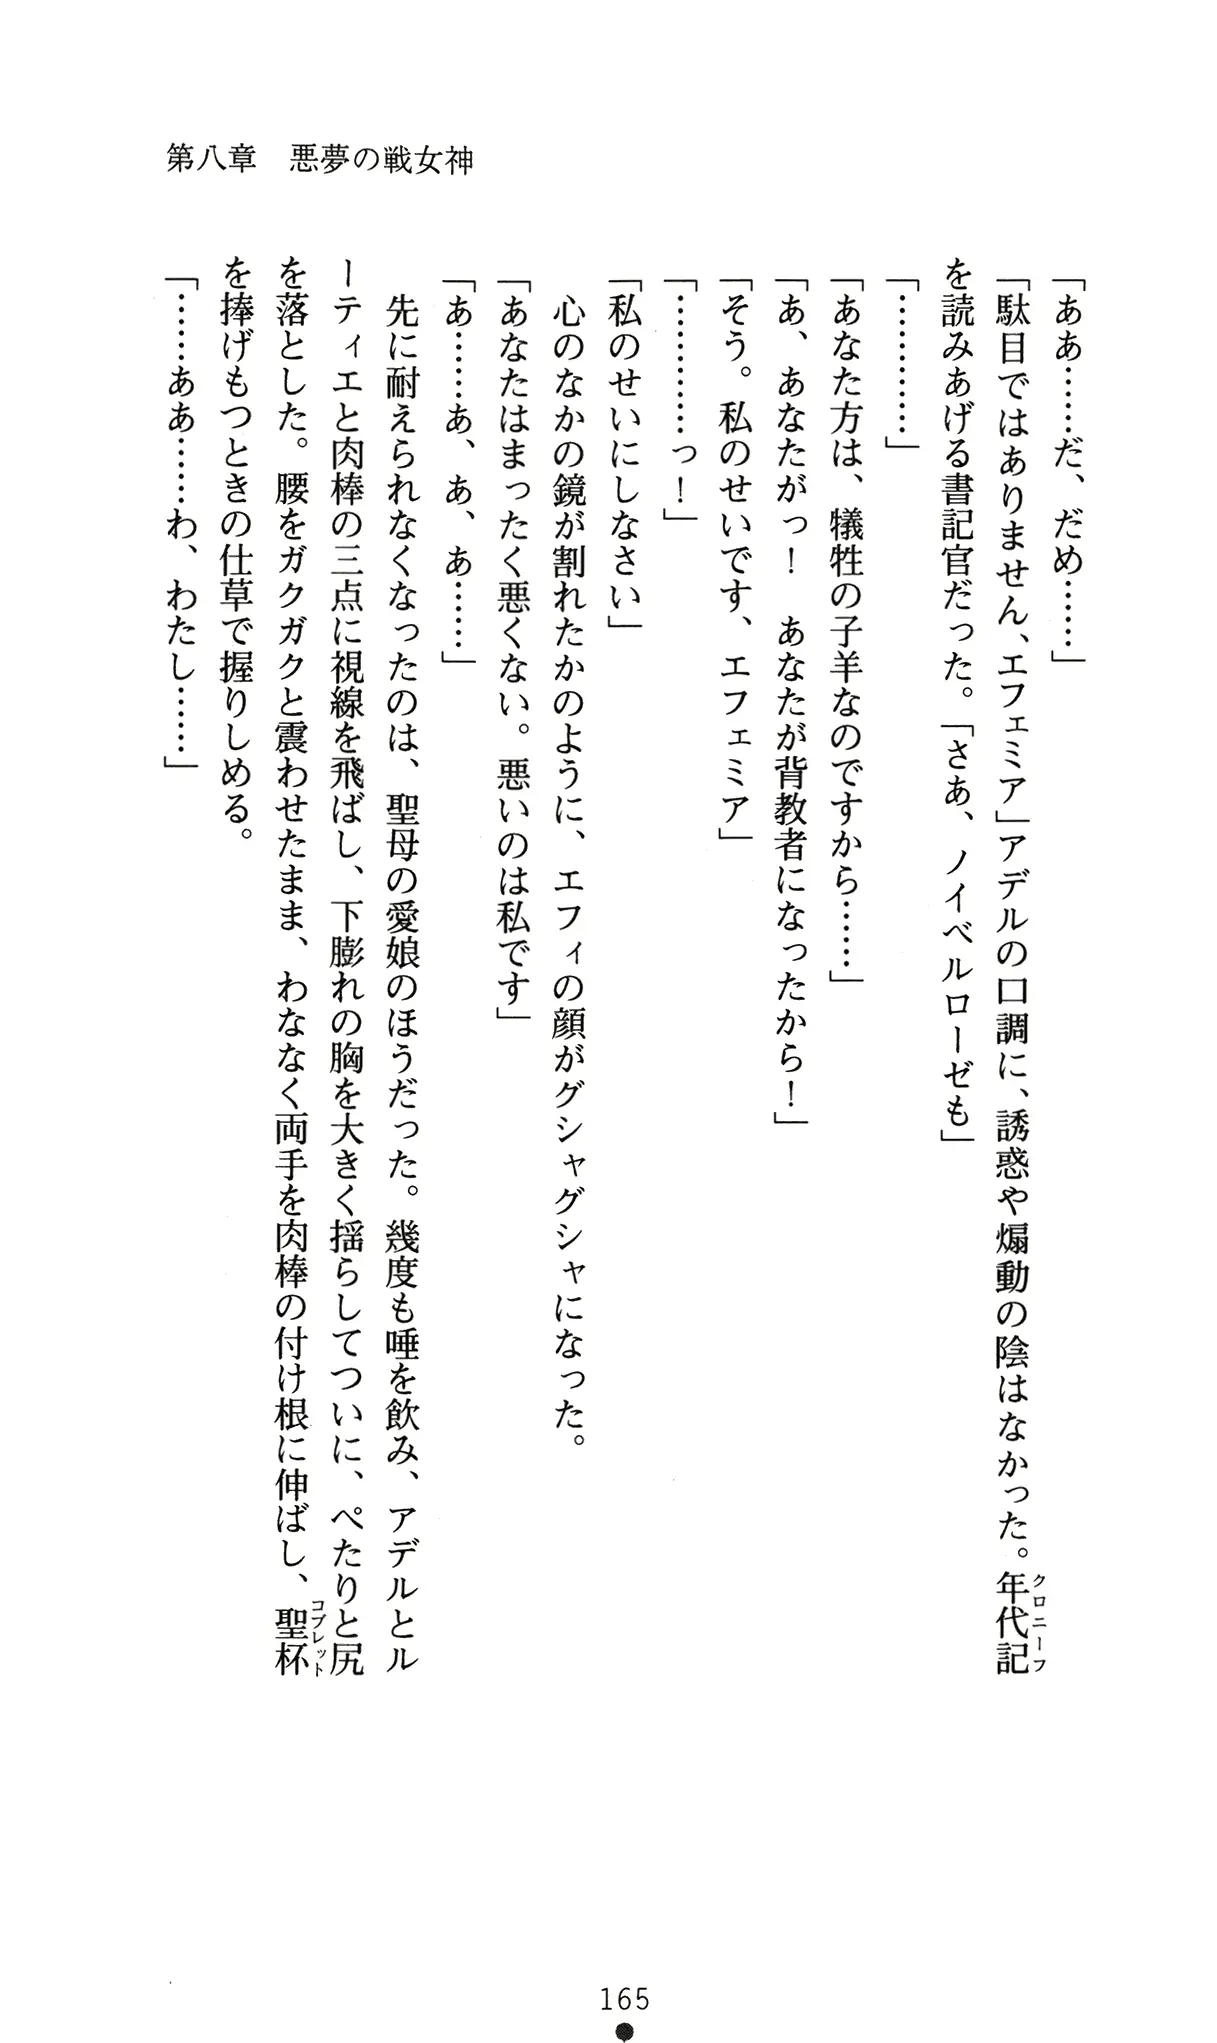 第八章　悪夢の戦女神
「ああ……だ、だめ……」
「駄目ではありません、エフェミア」アデルの口調に、誘惑や煽動の陰はなかった。年代記クロニーフ
を読みあげる書記官だった。「さあ、ノイベルローゼも」
「…………」
「あなた方は、犠牲の子羊なのですから……」
「あ、あなたがっ！　あなたが背教者になったから！」
「そう。私のせいです、エフェミア」
「…………っ！」
「私のせいにしなさい」
　心のなかの鏡が割れたかのように、エフィの顔がグシャグシャになった。
「あなたはまったく悪くない。悪いのは私です」
「あ……あ、あ、あ……」
　先に耐えられなくなったのは、聖母の愛娘のほうだった。幾度も唾を飲み、アデルとル
ーティエと肉棒の三点に視線を飛ばし、下膨れの胸を大きく揺らしてついに、ぺたりと尻
を落とした。腰をガクガクと震わせたまま、わななく両手を肉棒の付け根に伸ばし、聖杯コブレット
を捧げもつときの仕草で握りしめる。
「……ああ……わ、わたし……」
165